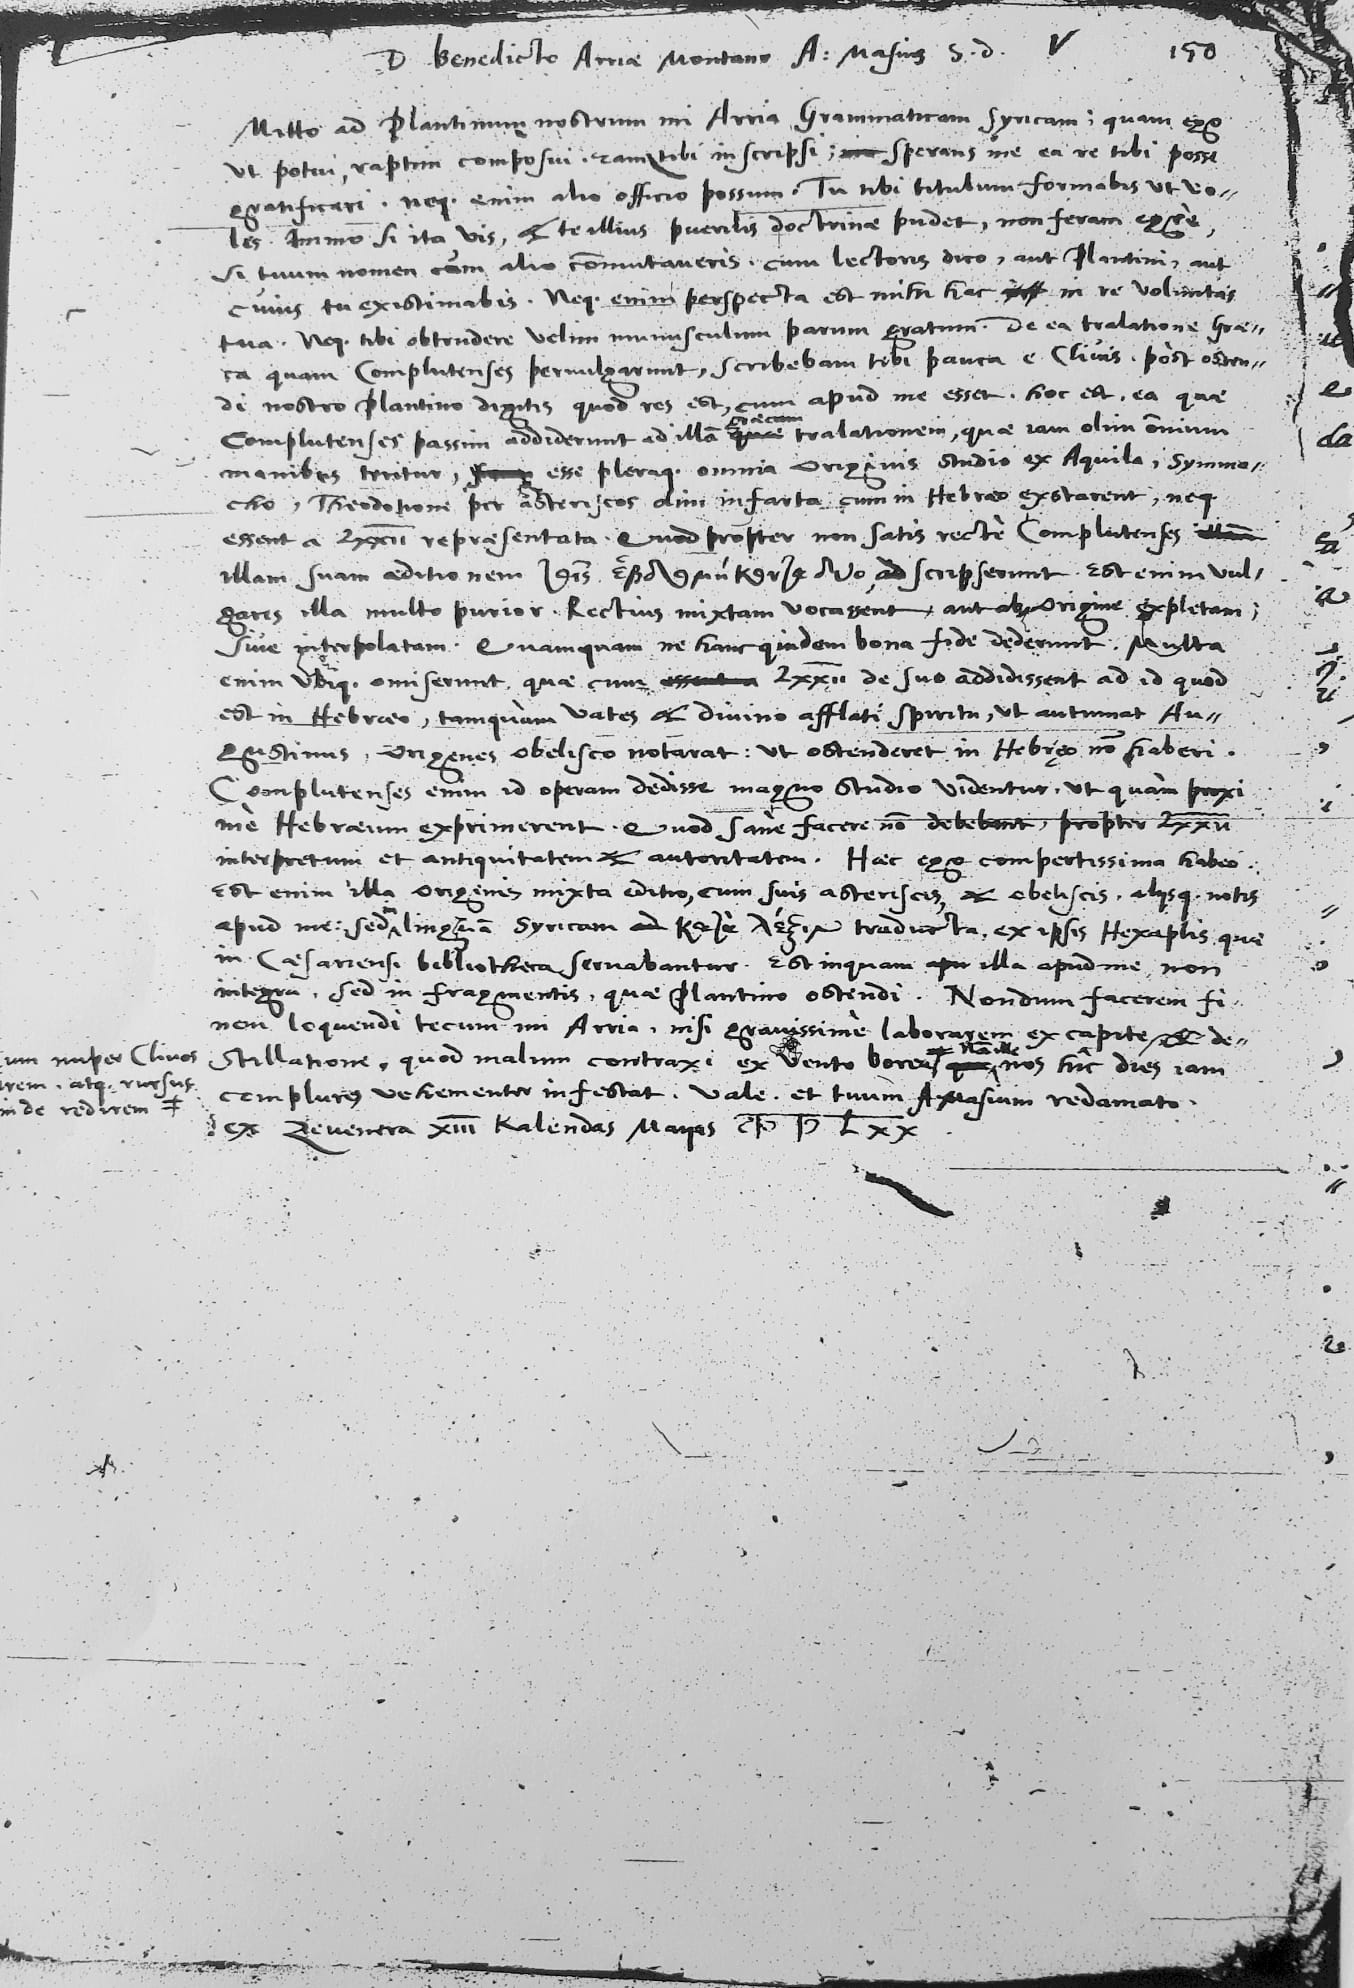 D Benedicto Arriæ Montano A: Masius S. d. V 150
Mitto ad Plantinum nostrum mi Arria Grammaticam Syricam; quam ego
ut potui, raptim composui. eamq tibi inscripsi; sperans me ea re tibi posse
gratificari. neq. enim alio officio possum. Tu tibi titulum formabis ut vo-
les. Immo si ita vis, & te illius puerilis doctrinæ pudet, non feram ægrè,
si tuum nomen cum alio com̄utaveris. cum lectoris dico, aut Plantini, aut
cuius tu existimabis. Neq. enim perspecta est mihi hac in re voluntas
tua. Neq. tibi obtrudere velim munusculum parum gratum. De ea tralatione Græ-
ca quam Complutenses pervulgarunt, scribebam tibi pauca e Clivis. post osten-
di nostro Plantino digitis quod res est, cum apud me esset. hoc est, ea quæ
Complutenses passim addiderunt ad illā græcam tralationem, quæ iam olim om̄ium
manibus tritur, esse pleraq. omnia Origenis studio ex Aquila, Symma-
cho, Theodotione per asteriscos olim infarta cum in Hebræo exstarent, neq
essent a LXXII repræsentata. Quod propter non satis rectè Complutenses
illam suam æditionem τοῖς ἑβδομήκοντα δύο adscripserunt. Est enim vul-
garis illa multo purior. Rectius mixtam vocassent, aut ab Origine expletam;
sive interpolatam. Quamquam ne hanc quidem bona fide dederunt. Multa
enim ubiq. omiserunt, quæ cum LXXII de suo addidissent ad id quod
est in Hebræo, tamquam vates & divino afflati spiritu, ut autumat Au-
gustinus, Origenes obelisco notarat: ut ostenderet in Hebręo nō haberi.
Complutenses enim id operam dedisse magno studio videntur, ut quàm proxi
mè Hebræum exprimerent. Quod sanè facere nō debebant, propter LXXII
interpretum et antiquitatem & autoritatem. Hæc ego compertissima habeo.
Est enim illa Origenis mixta editio, cum suis asteriscis, & obeliscis, aliisq. notis
apud me: sed in linguā Syricam κατὰ λέξιν traducta, ex ipsis Hexaplis quæ
in Cæsariensi bibliotheca servabantur. Est inquam illa apud me, non
integra, sed in fragmentis, quæ Plantino ostendi. Nondum facerem fi
nem loquendi tecum mi Arria, nisi gravissimè laborarem ex capite & de-
stillatione, quod malum contraxi ex vento borea, nā ille nos hîc dies iam
complures vehementer infestat. Vale. et tuum Masium redamato.
ex Zevenera XIII Kalendas Maias LXX
um nuper Clivos
irem. atq. rursus
inde redirem